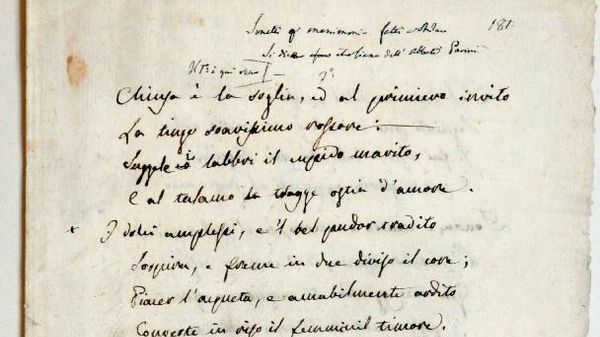 Sonetti
181
Si dice
dell' Abbate Parini
i qui
Chiusa è la soglia, ed al primiero invito
La tinge soavissimo rossore:
Suggele i labbri il cupido marito,
E al talamo la tragge ostia d'amore.
I dolci amplessi, e 'l bel pudor tradito
Sospira, e freme in due diviso il core;
Piacer l'acqueta, e amabilmente ardito
Converte in riso il femminil timore.